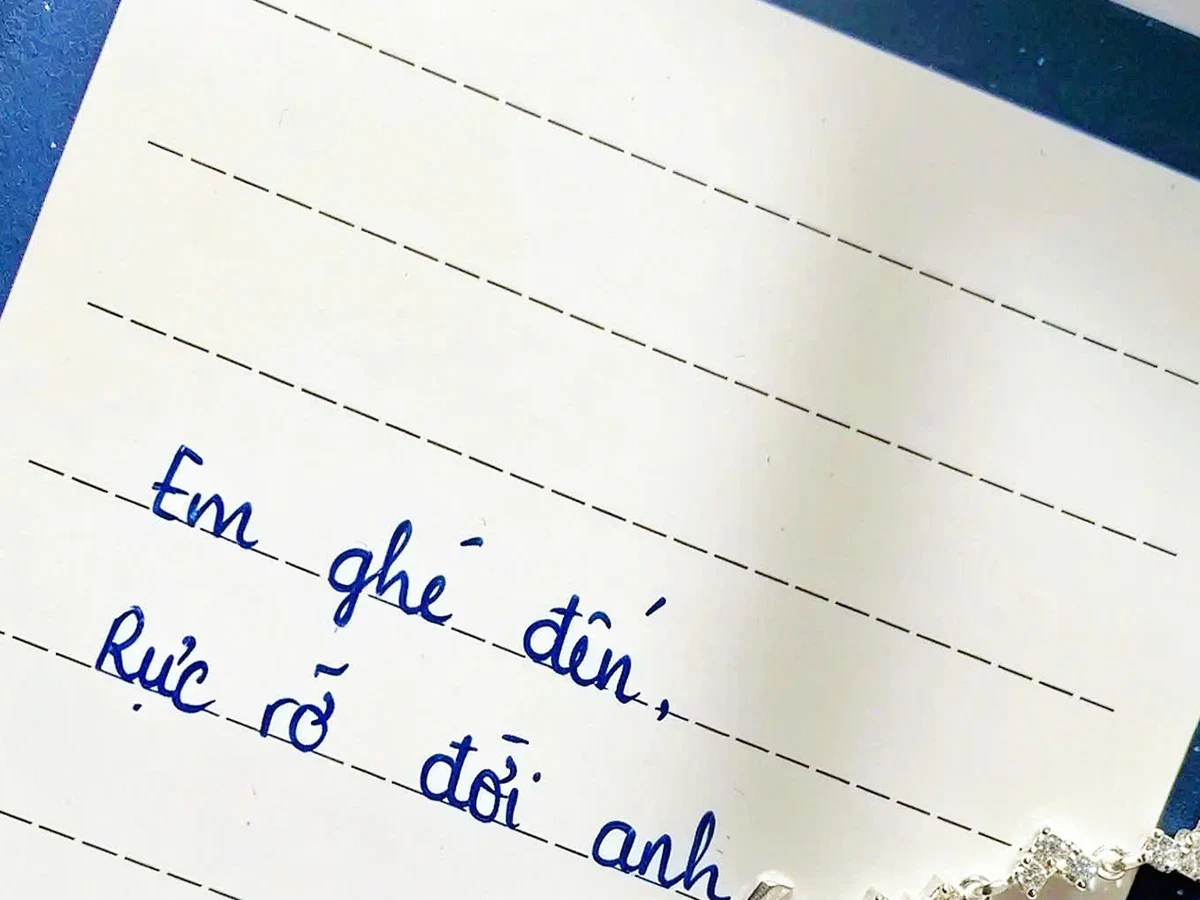 Em ghé đến,
Rực rỡ đời anh